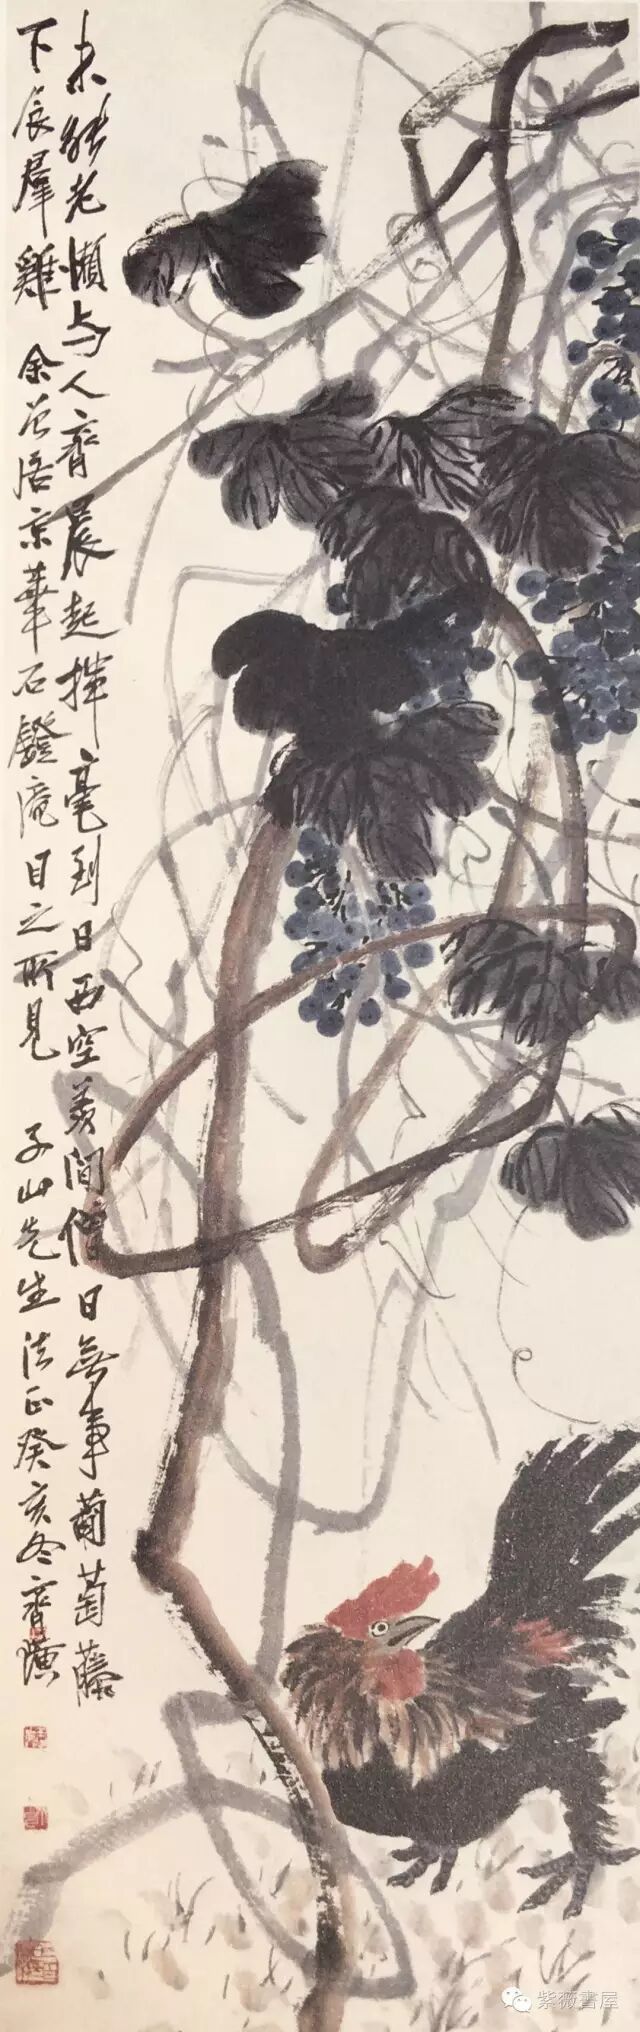 未能老懶與人齊晨起揮毫到日西空羨閒僧日無事葡萄藤
下食群雞 余曾居京華石鐙庵目之所見 子山先生法正癸亥冬齊璜
紫薇書屋